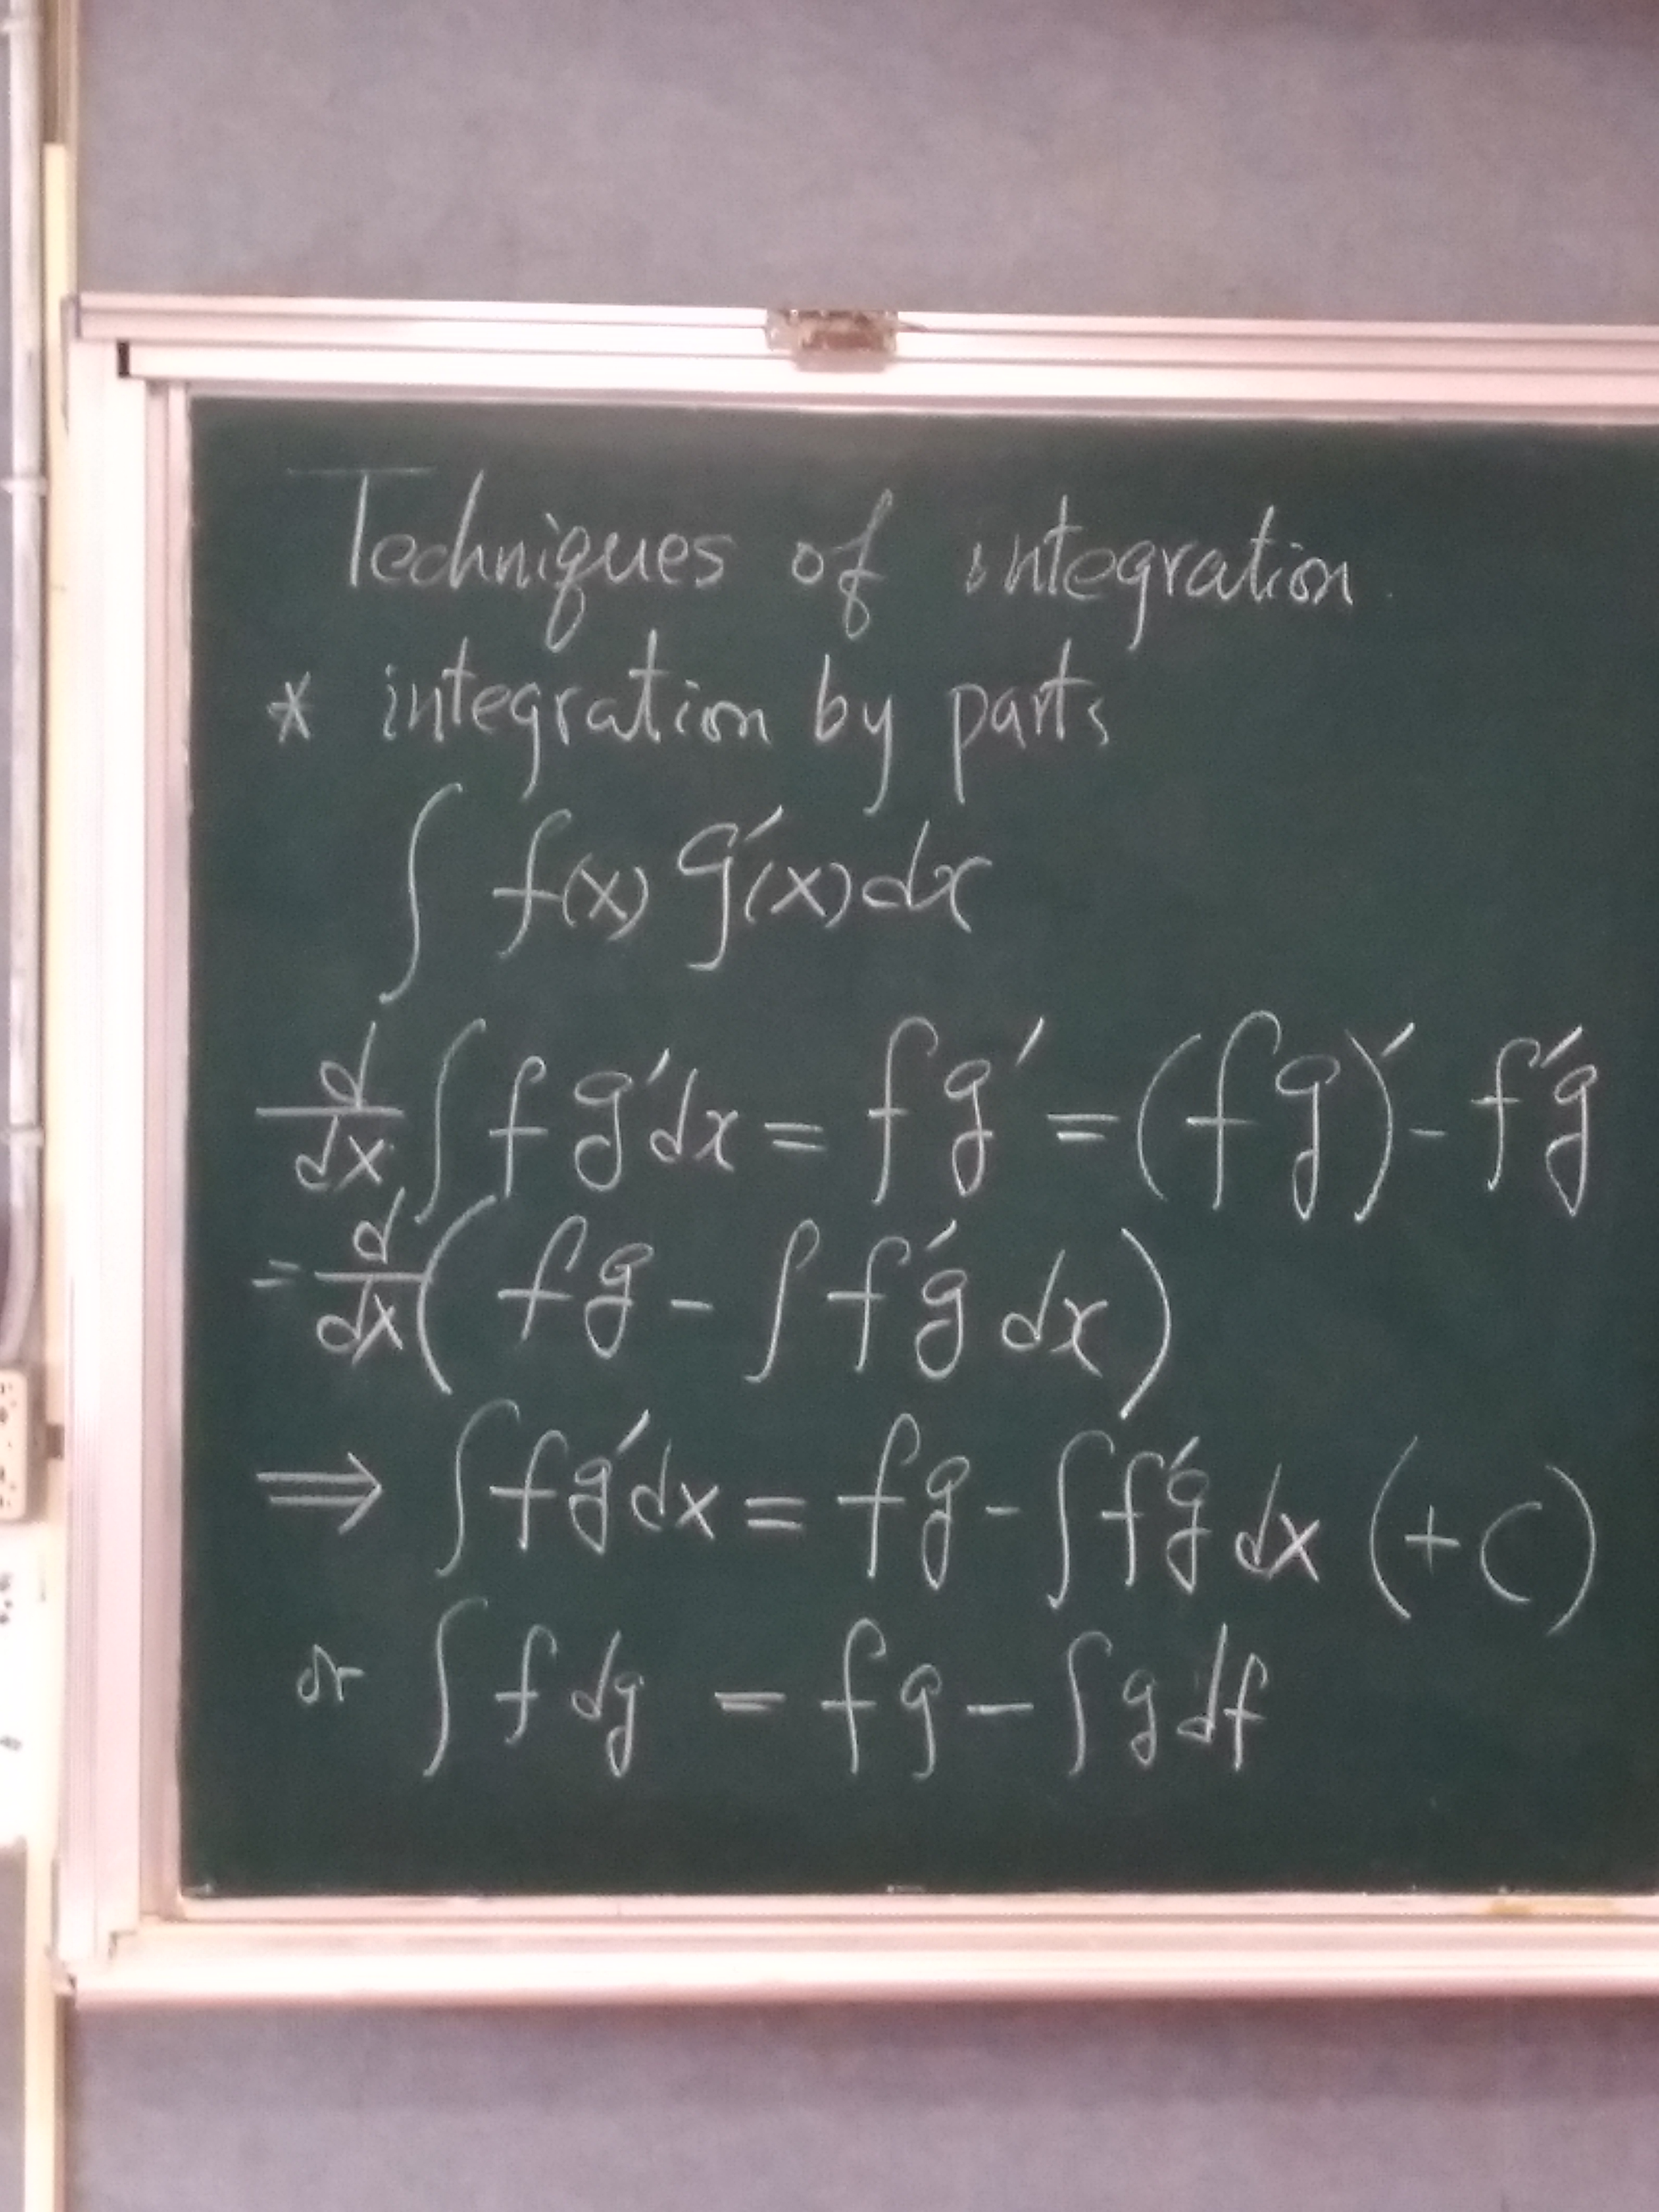 Techniques of integration
* integration by parts
∫ f(x) g′(x) dx
d/dx ∫ f g′ dx = f g′ = (f g)′ - f′g
= d/dx ( f g - ∫ f′g dx )
⟹ ∫ f g′ dx = f g - ∫ f′g dx (+ C)
or ∫ f dg = f g - ∫ g df